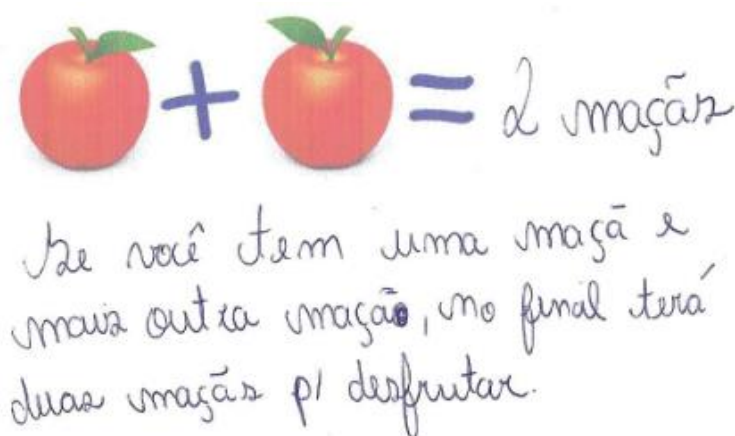 + = 2 maçãs
Se você tem uma maçã e
mais outra maçã, no final terá
duas maçãs p/ desfrutar.